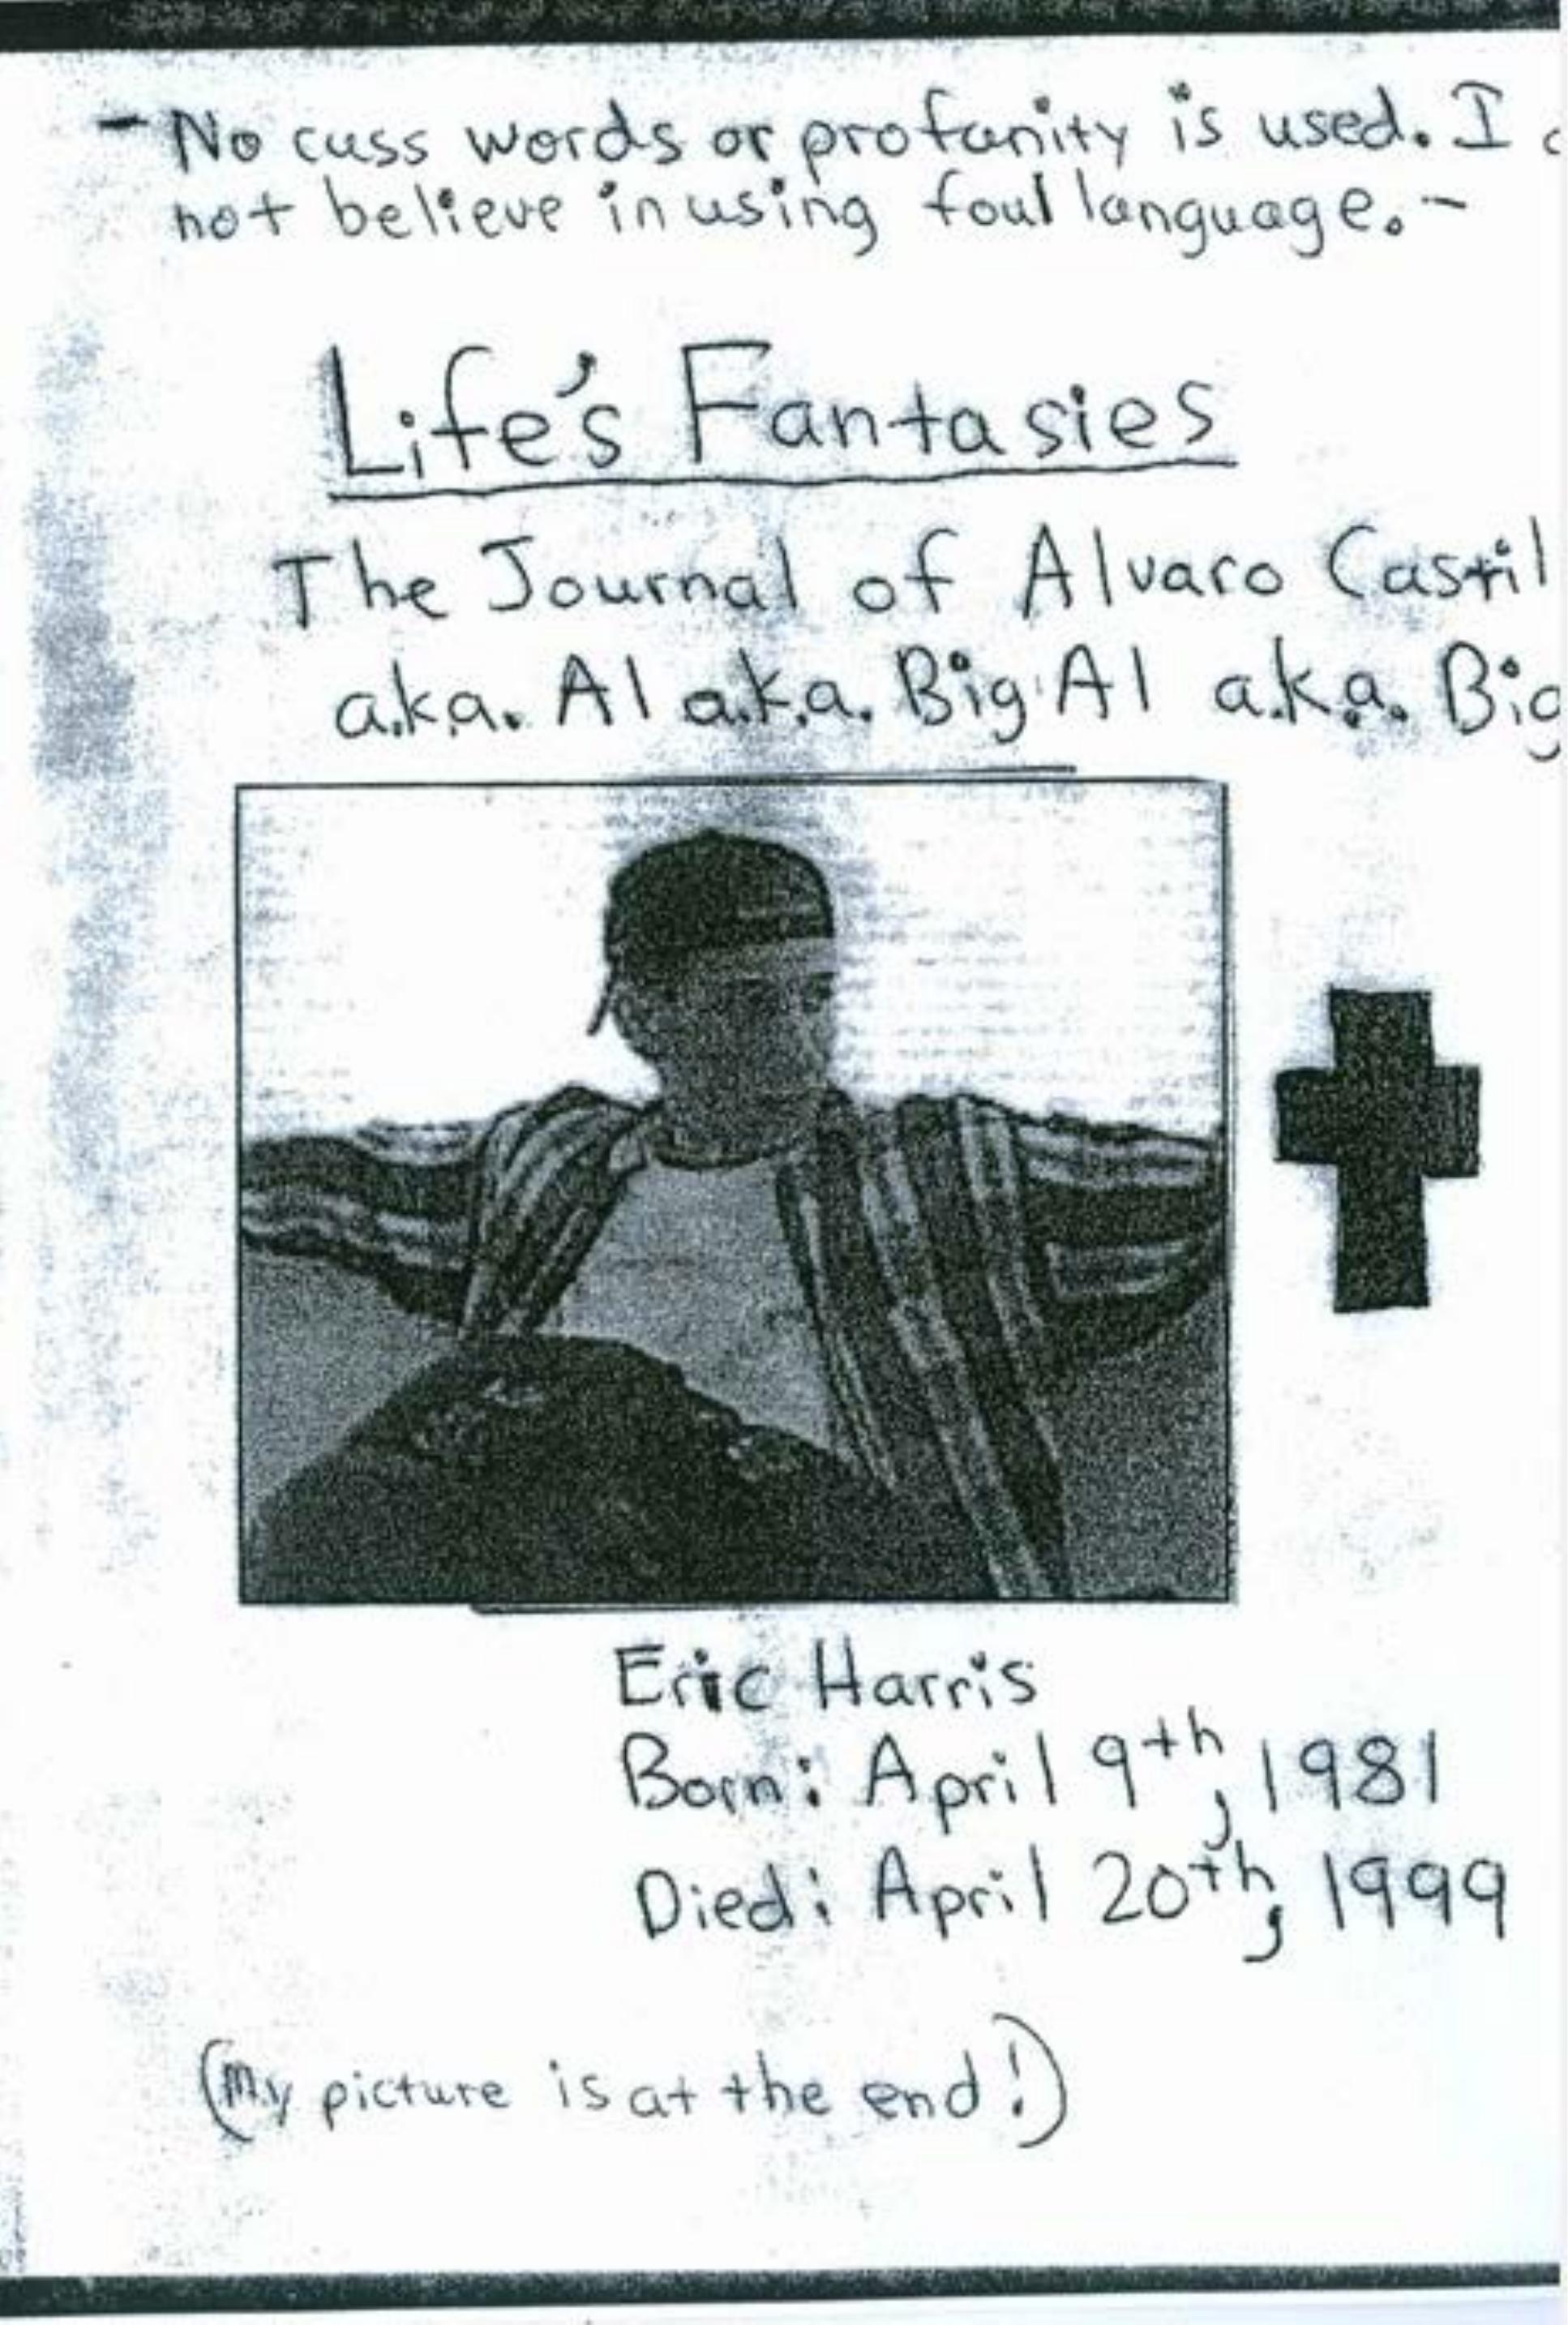 - No cuss words or profanity is used. I
not believe in using foul language. -
Life's Fantasies
The Journal of Alvaro Castil
a.k.a. Al a.k.a. Big Al a.k.a. Big
Eric Harris
Born: April 9th, 1981
Died: April 20th, 1999
(My picture is at the end!)